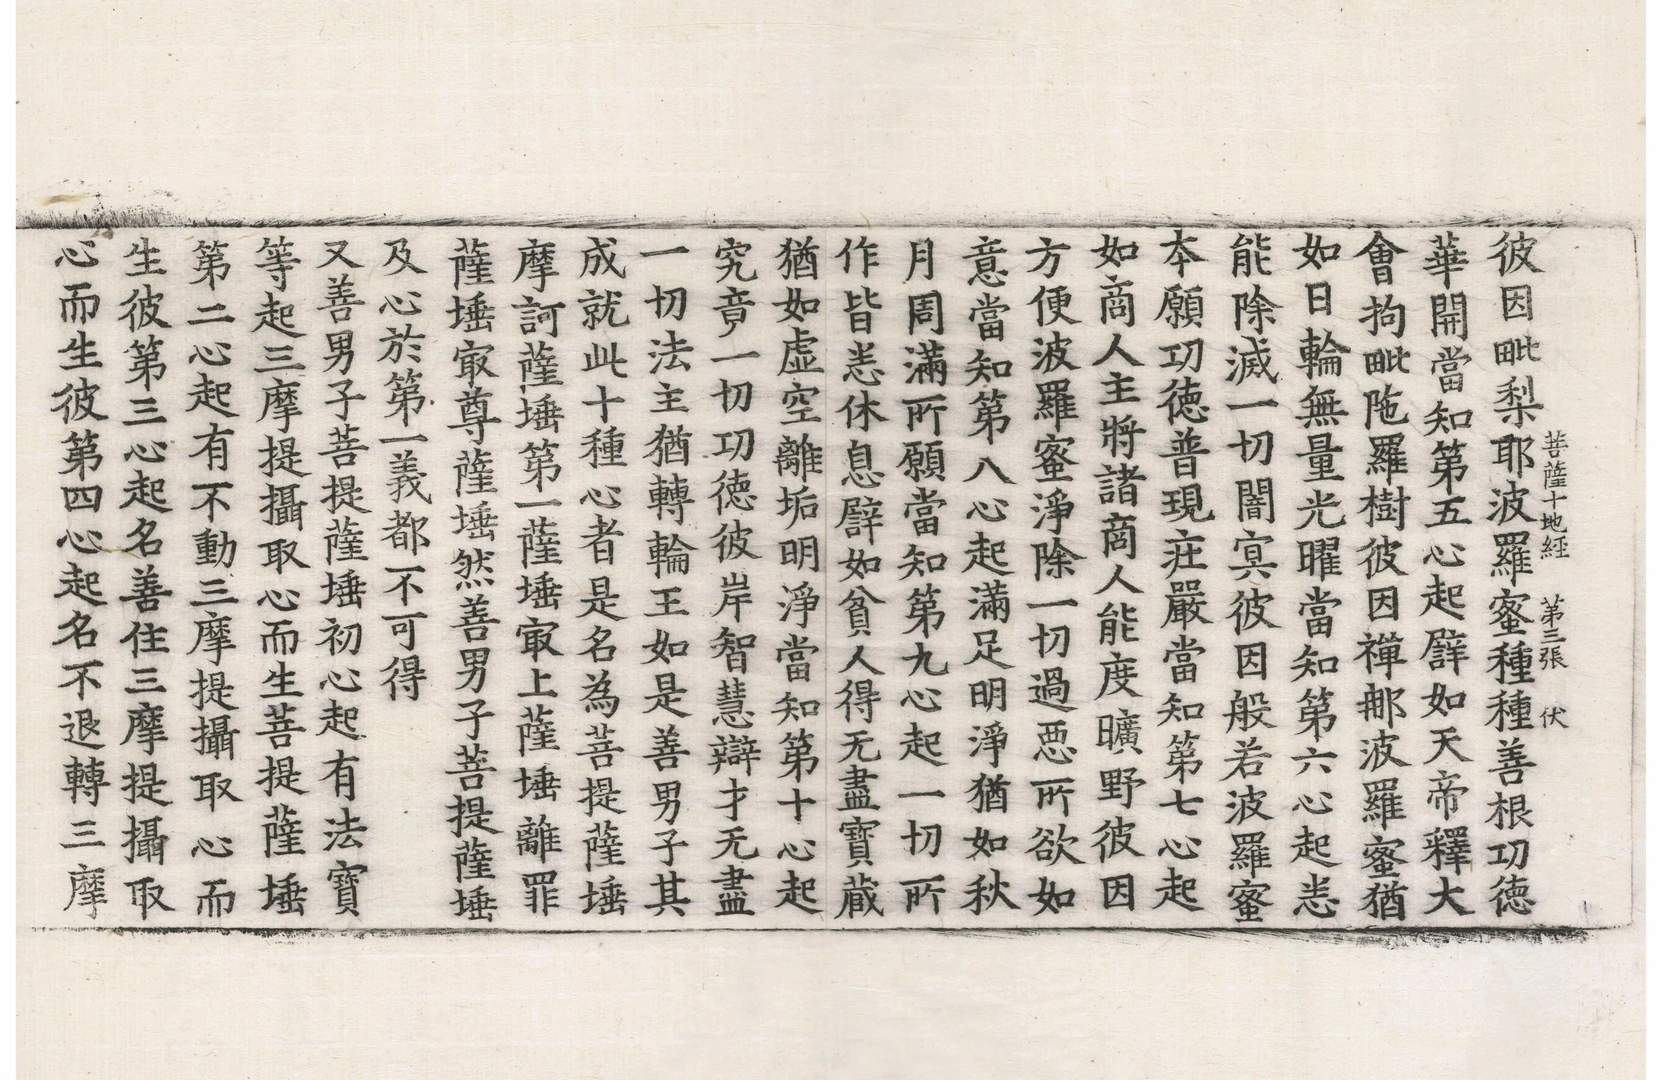 菩薩十地経 第三張 伏
彼因毗梨耶波羅蜜種種善根功德
華開當知第五心起譬如天帝釋大
會拘毗陁羅樹彼因禪那波羅蜜猶
如日輪無量光曜當知第六心起悉
能除滅一切闇冥彼因般若波羅蜜
本願功德普現庄嚴當知第七心起
如商人主將諸商人能度曠野彼因
方便波羅蜜淨除一切過惡所欲如
意當知第八心起滿足明淨猶如秋
月周滿所願當知第九心起一切所
作皆悉休息譬如貧人得无盡寶蔵
猶如虛空離垢明淨當知第十心起
究竟一切功德彼岸智慧辯才无盡
一切法主猶轉輪王如是善男子其
成就此十種心者是名為菩提薩埵
摩訶薩埵第一薩埵㝡上薩埵離罪
薩埵㝡尊薩埵然善男子菩提薩埵
及心於第一義都不可得
又善男子菩提薩埵初心起有法寶
等起三摩提攝取心而生菩提薩埵
第二心起有不動三摩提攝取心而
生彼第三心起名善住三摩提攝取
心而生彼第四心起名不退轉三摩